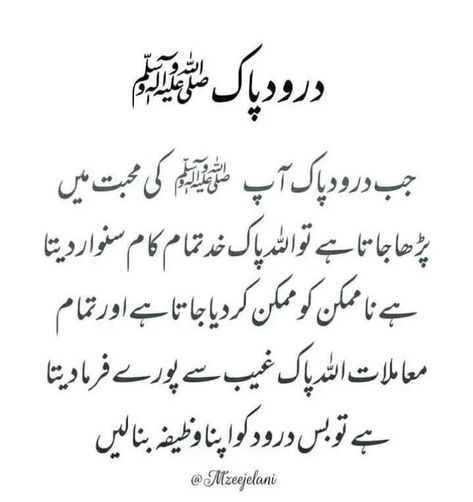 درود پاک ﷺ
جب درود پاک آپ ﷺ کی محبت میں
پڑھا جاتا ہے تو اللہ پاک خد تمام کام سنوار دیتا
ہے ناممکن کو ممکن کر دیا جاتا ہے اور تمام
معاملات اللہ پاک غیب سے پورے فرما دیتا
ہے تو بس درود کو اپنا وظیفہ بنا لیں
@Mzeejelani